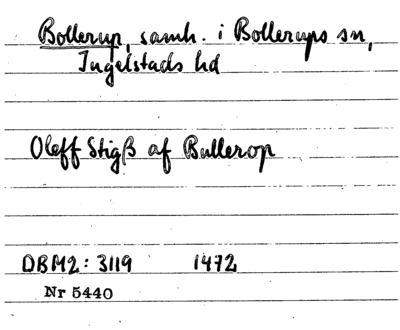 Bollerup, samh. i Bollerups sn,
Ingelstads hd
Oleff Stigß af Bullerop
DBM2: 3119 1472
Nr 5440